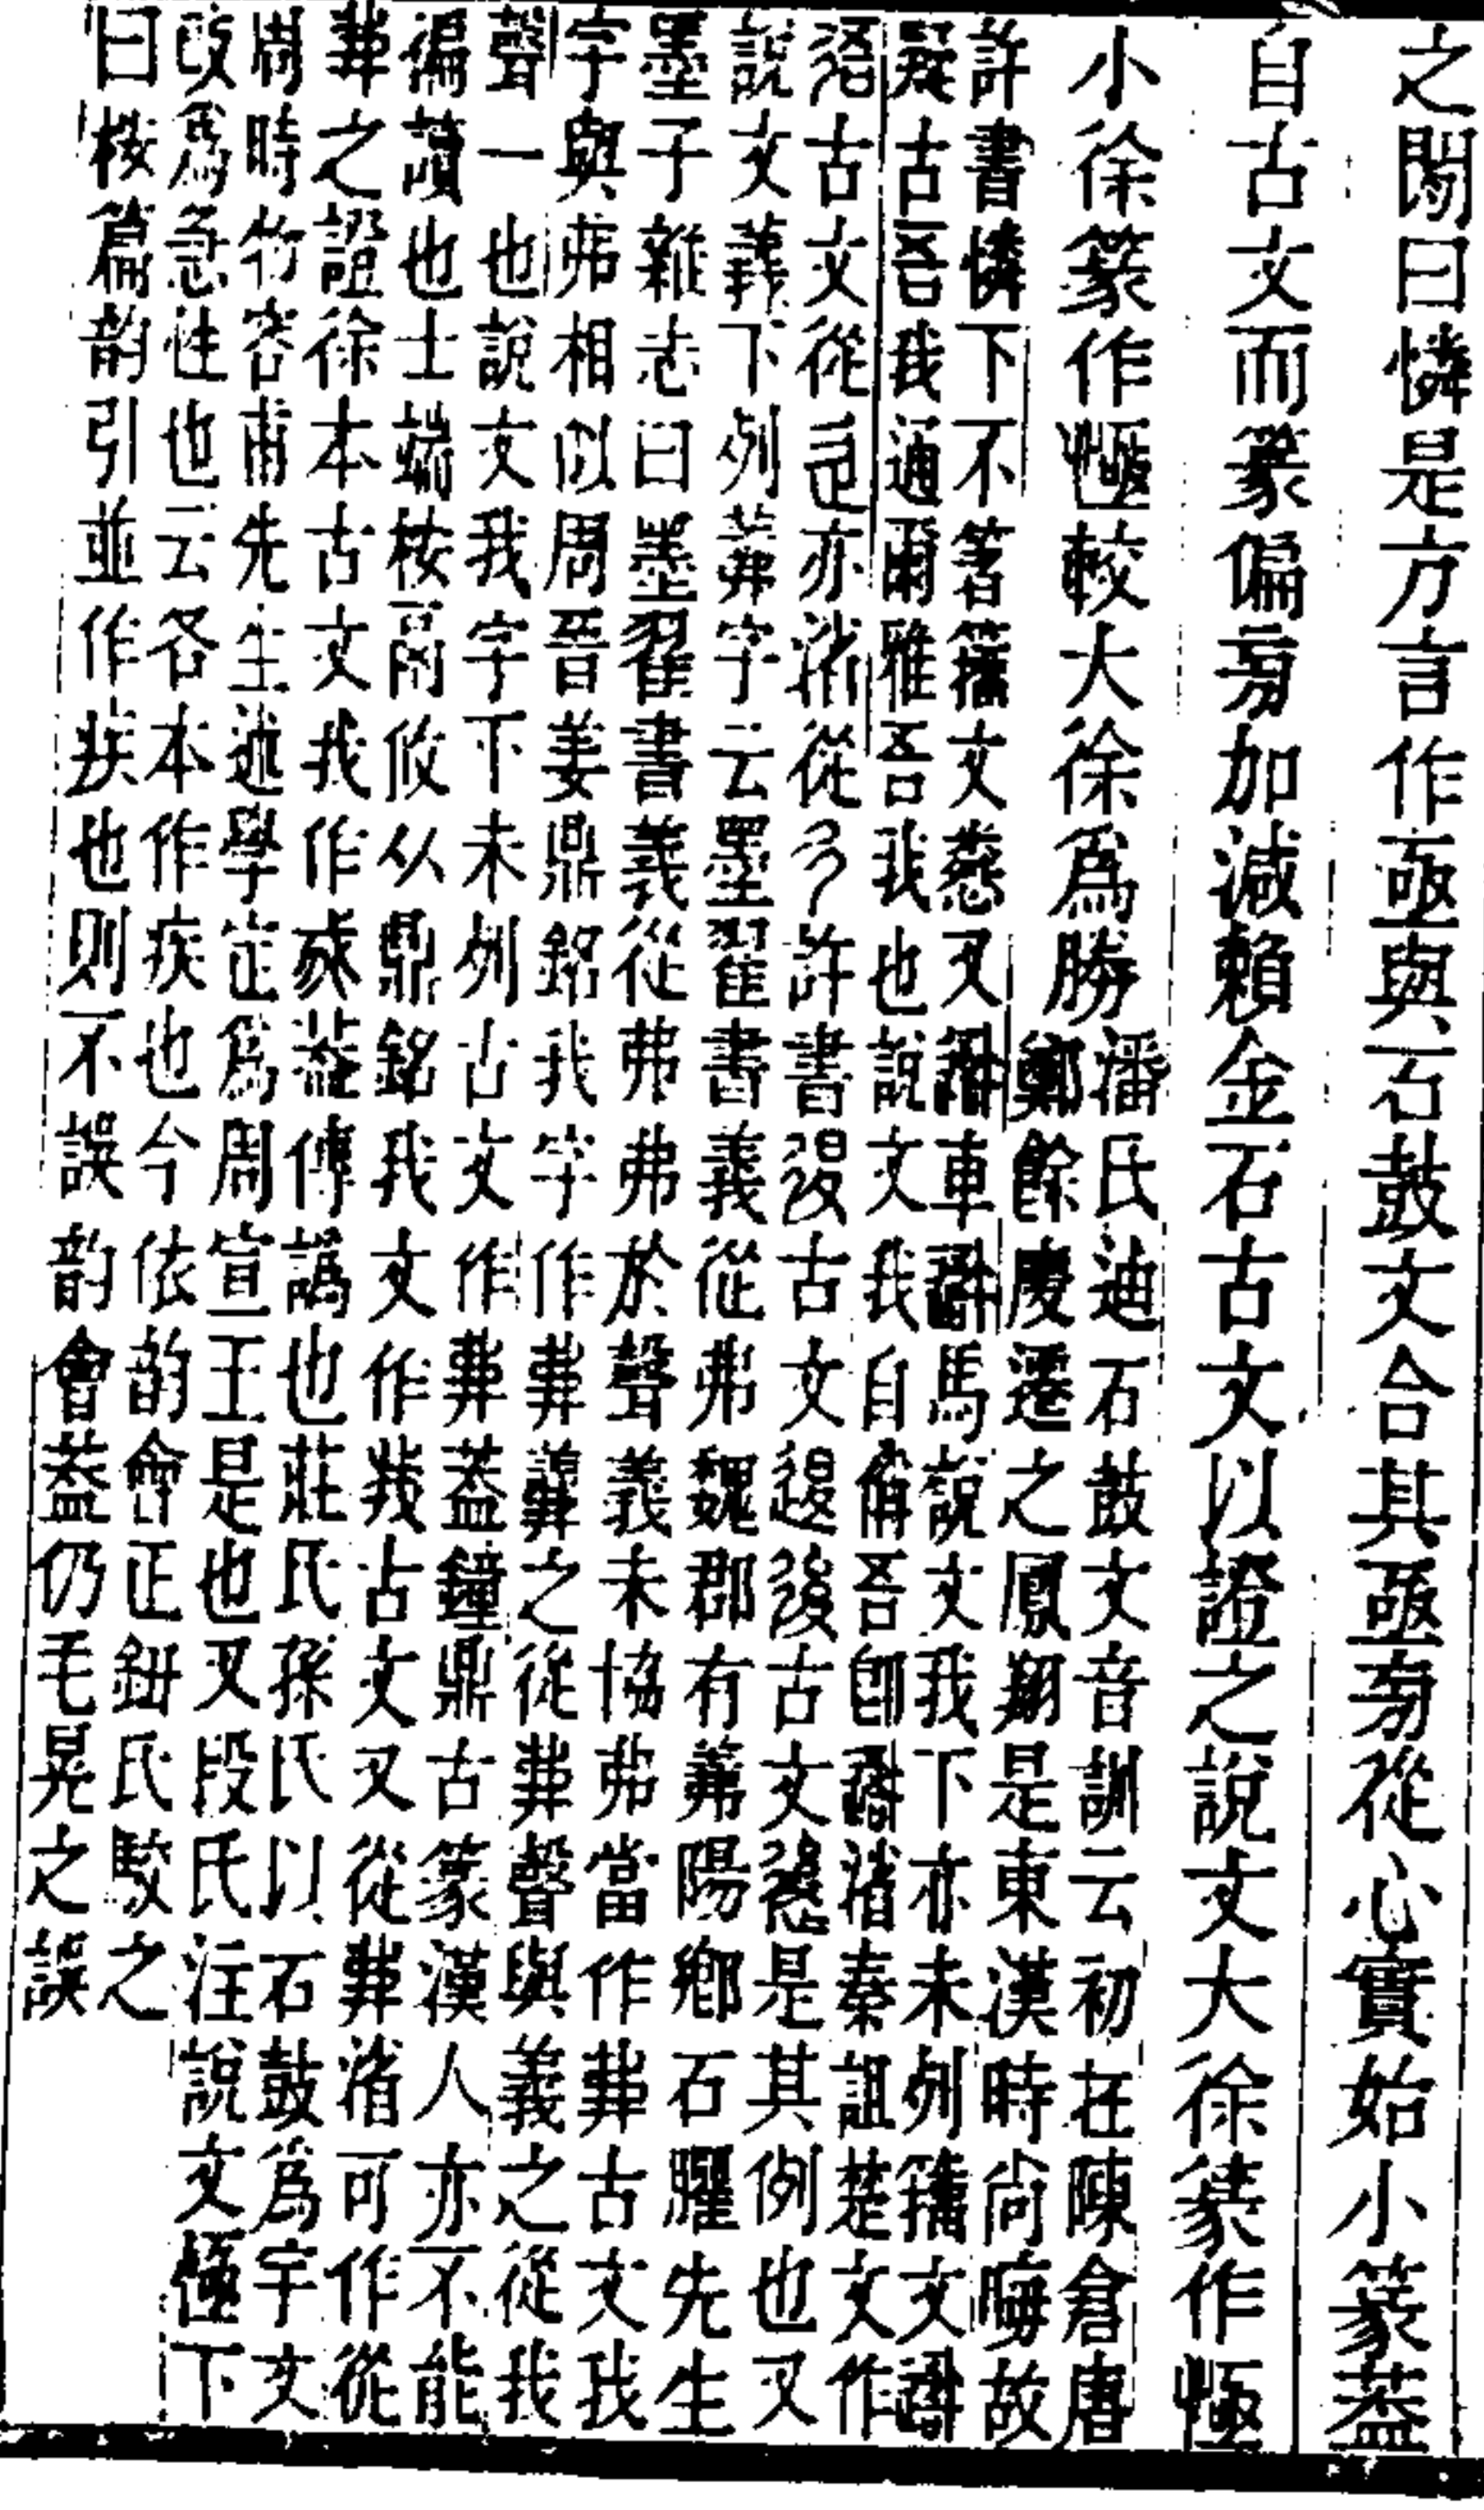 之閒曰憐是方言作亟與石鼓文合其亟旁從心實始小篆蓋
自古文而篆偏旁加減賴金石古文以證之說文大徐篆作㥛
小徐篆作㥛較大徐爲勝
潘氏迪石鼓文音訓云初在陳倉唐
鄭餘慶遷之鳳翔是東漢時尙晦故
許書憐下不箸籒文又車馬說文我下亦未列籒文
疑古吾我通爾雅吾我也說文我自偁吾卽渚秦詛楚文作
古文從亦從許書復古文邊後古文是其例也又
說文義下列羛字云墨翟書義從弗魏郡有羛陽鄉石臞先生
墨子雜志曰墨翟書義從弗弗於聲義未協弗當作古文我
字與弗相似周晉姜鼎銘我字作之從聲與義之從我
聲一也說文我字下未列古文作蓋鐘鼎古篆漢人亦不能
徧讀也士端桉鬲攸从鼎銘我文作古文又從渚可作從
之證徐本古文我作傳譌也莊氏孫氏以石鼓爲宇文
周時竹容甫先生述學定爲周宣王是也又段氏注說文㥛下
改爲急性也云各本作疾也今依韵會正鈕氏駮之
曰桉篇韵引並作疾也則不誤韵會蓋仍毛晃之誤